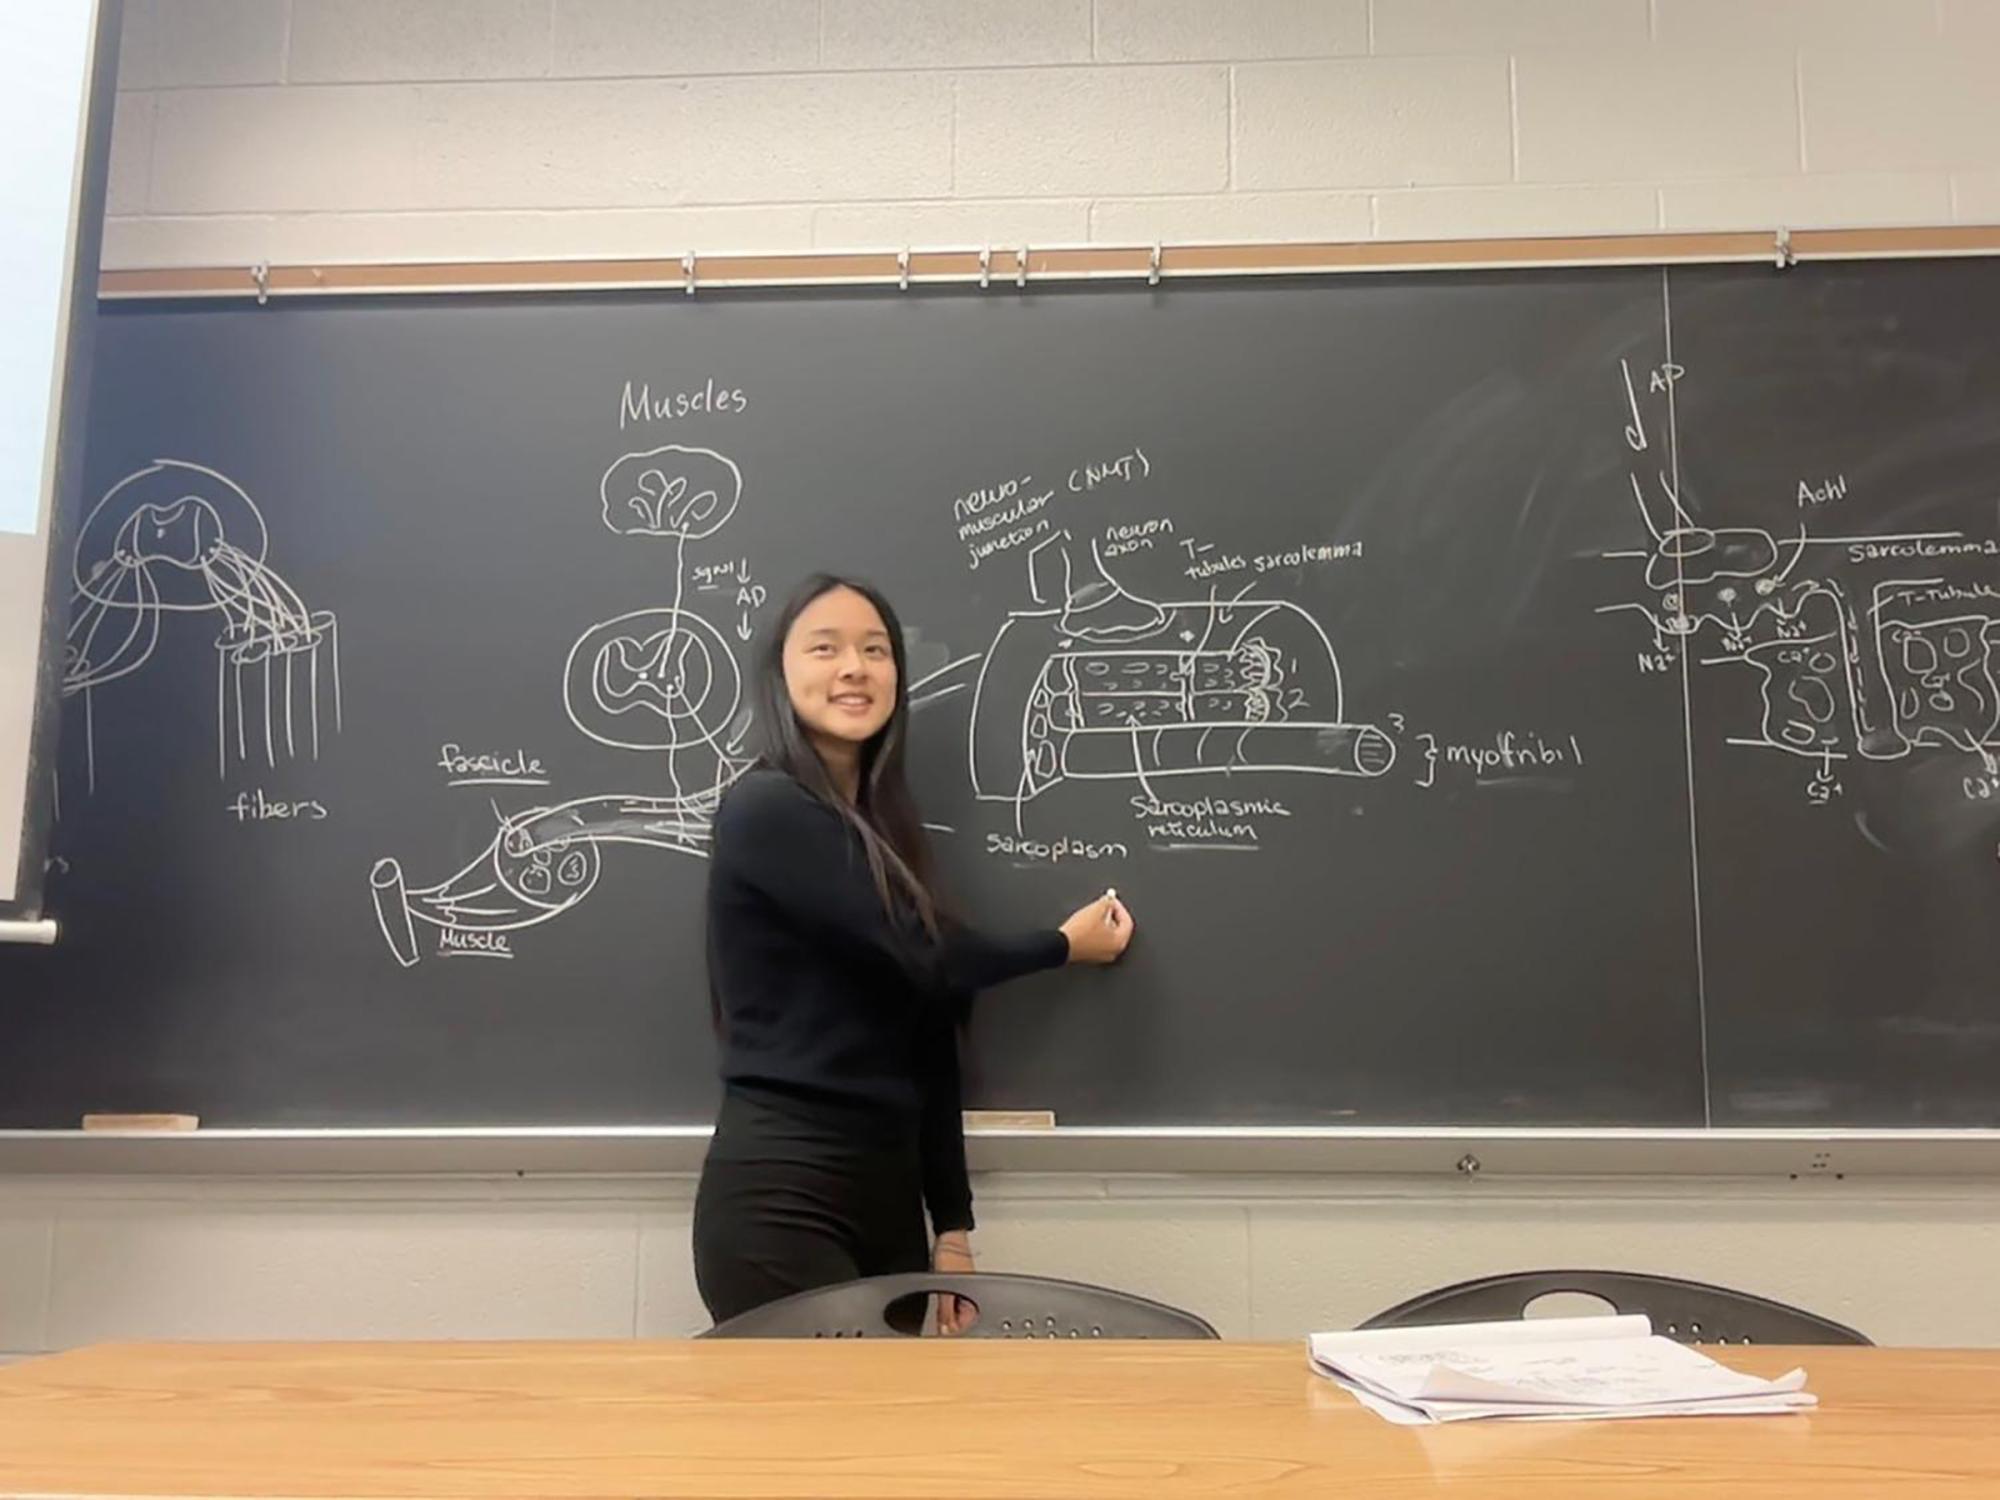 Muscles
fibers
signal
AP
fascicle
Muscle
neuro-
muscular (NMJ)
junction
neuron
axon
T-
tubules
sarcolemma
1
2
3
} myofribil
Sarcoplasmic
reticulum
sarcoplasm
AP
Achl
Sarcolemma
T-Tubule
Na+
Na+
Na+
Ca+
Ca+
Ca+